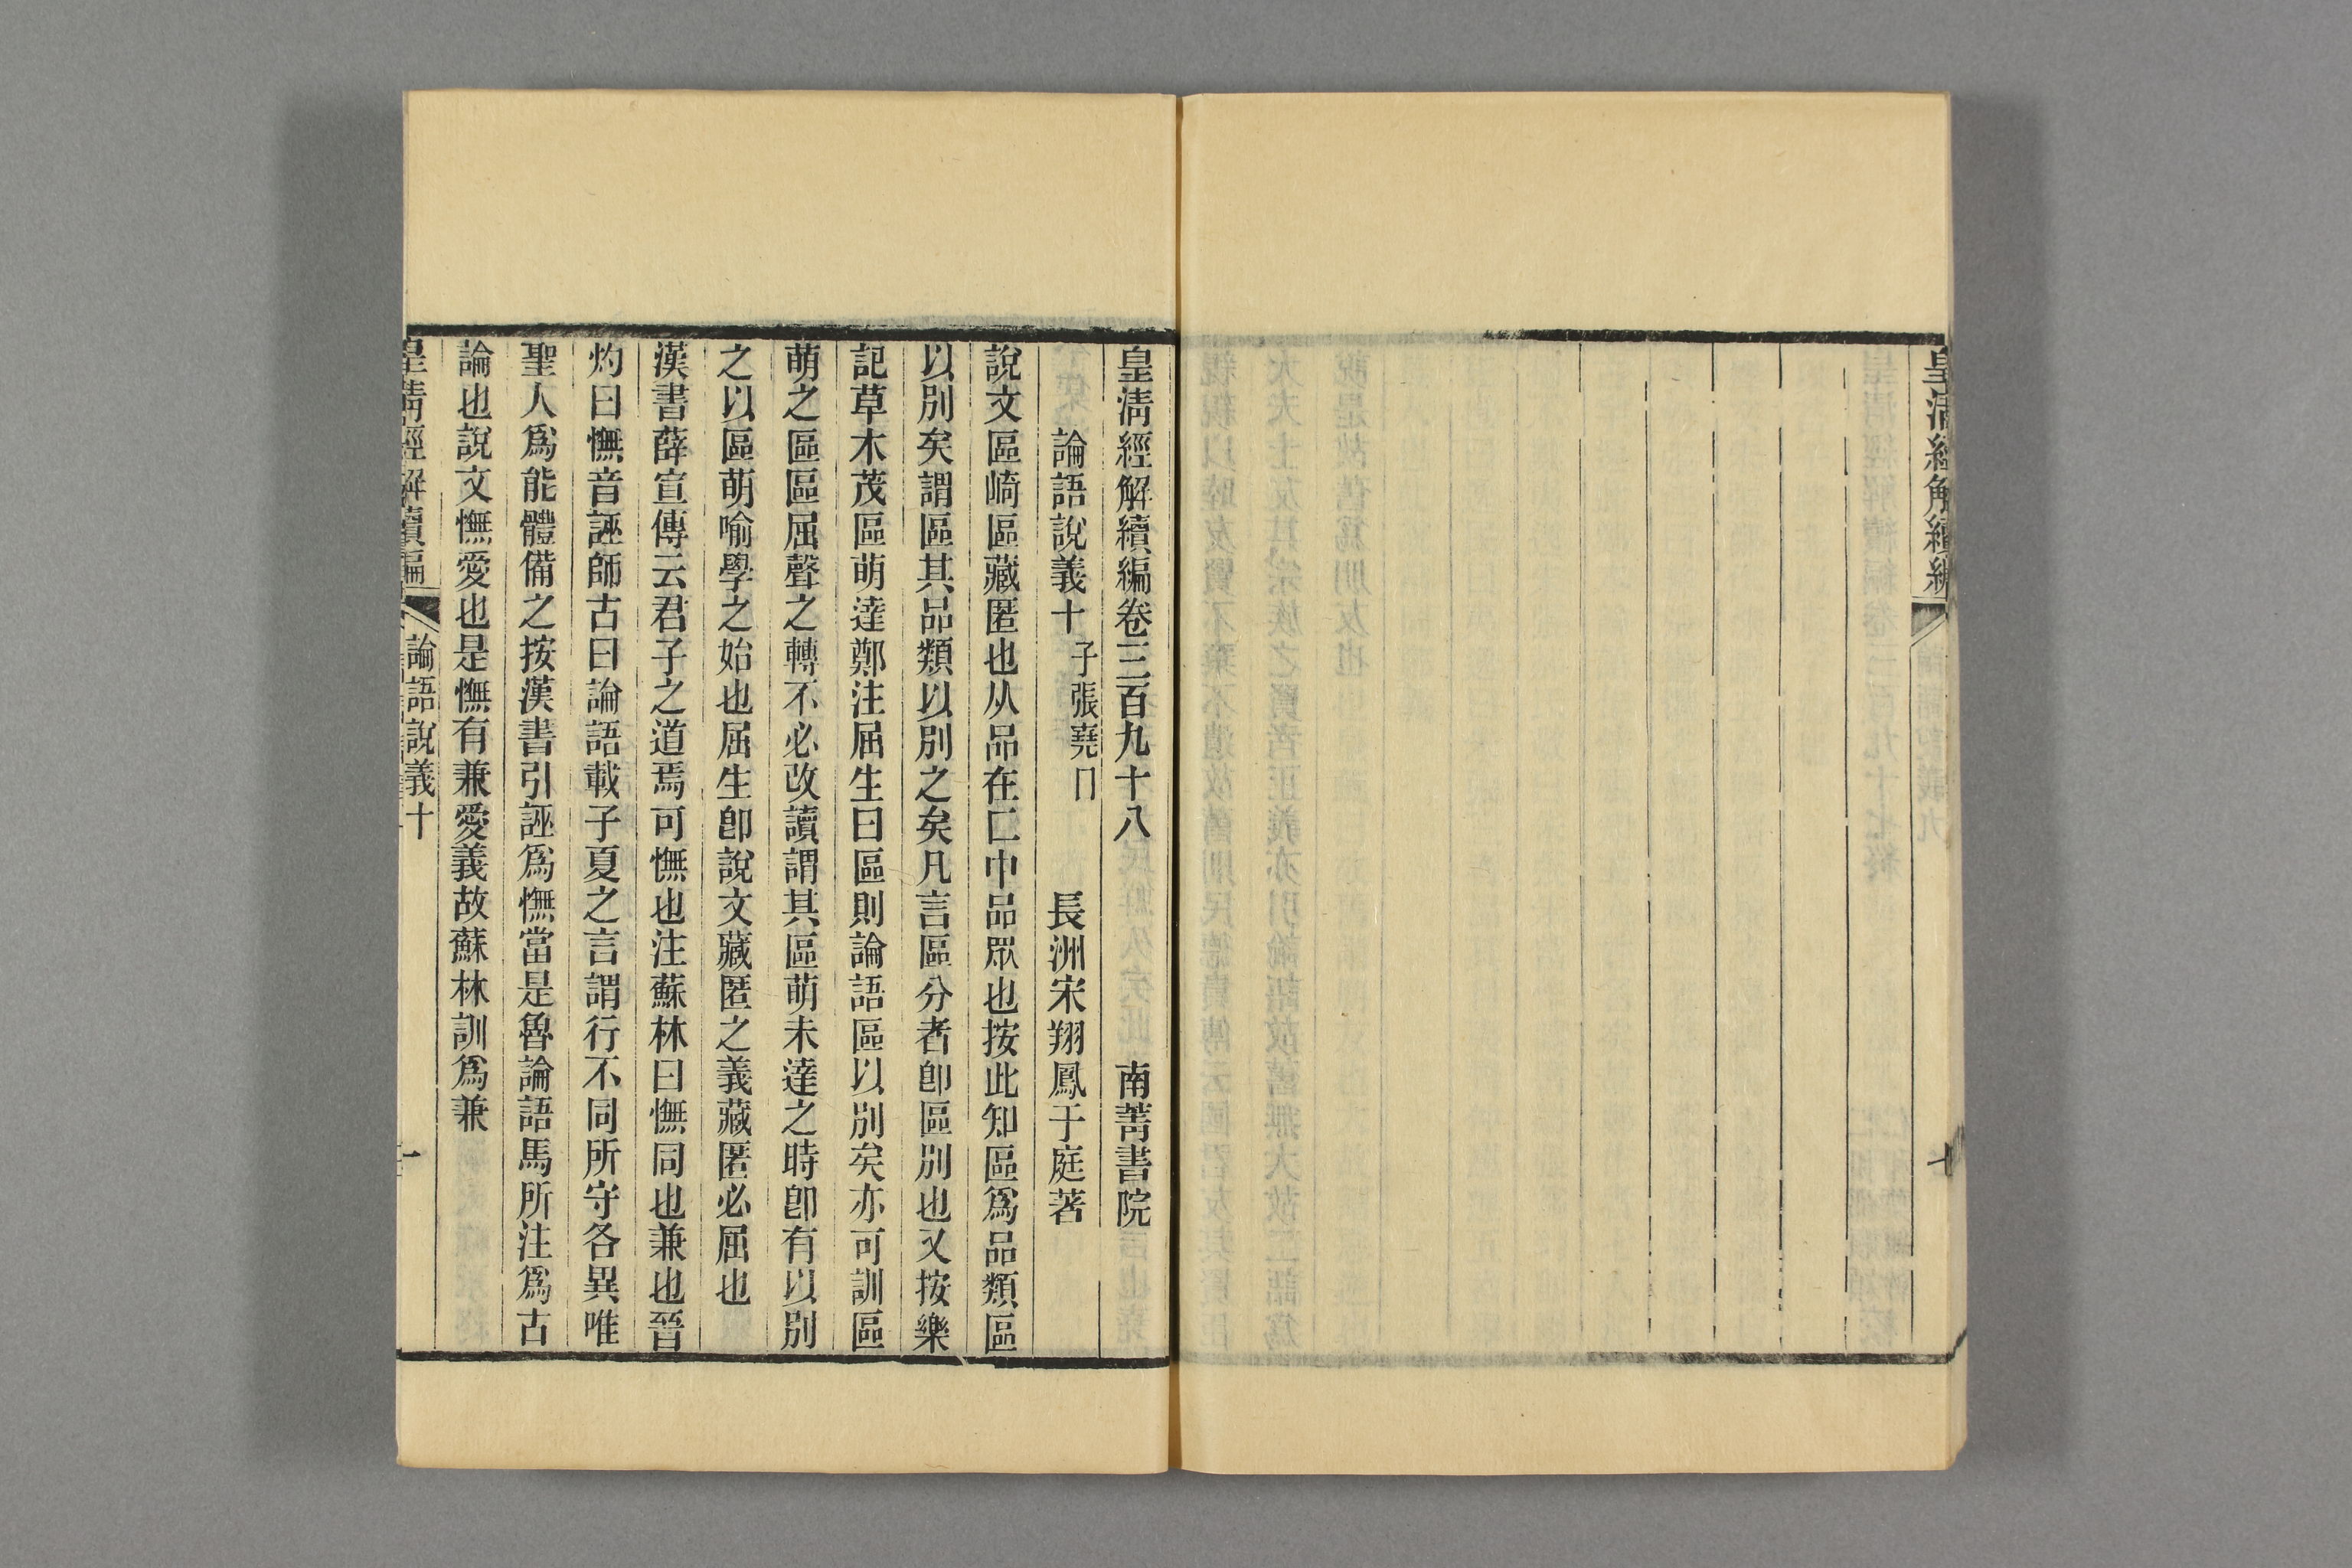 皇清經解續編
十
皇清經解續編卷三百九十八
南菁書院
論語說義十
子張堯曰
長洲宋翔鳳于庭著
說文區崎區藏匿也从品在匚中品眾也按此知區爲品類區
以別矣謂區其品類以別之矣凡言區分者卽區別也又按樂
記草木茂區萌達鄭注屈生曰區則論語區以別矣亦可訓區
萌之區區屈聲之轉不必改讀謂其區萌未達之時卽有以別
之以區萌喻學之始也屈生卽說文藏匿之義藏匿必屈也
漢書薛宣傳云君子之道焉可憮也注蘇林曰憮同也兼也晉
灼曰憮音誣師古曰論語載子夏之言謂行不同所守各異唯
聖人爲能體備之按漢書引誣爲憮當是魯論語馬所注爲古
論也說文憮愛也是憮有兼愛義故蘇林訓爲兼
皇清經解續編
論語說義十
一